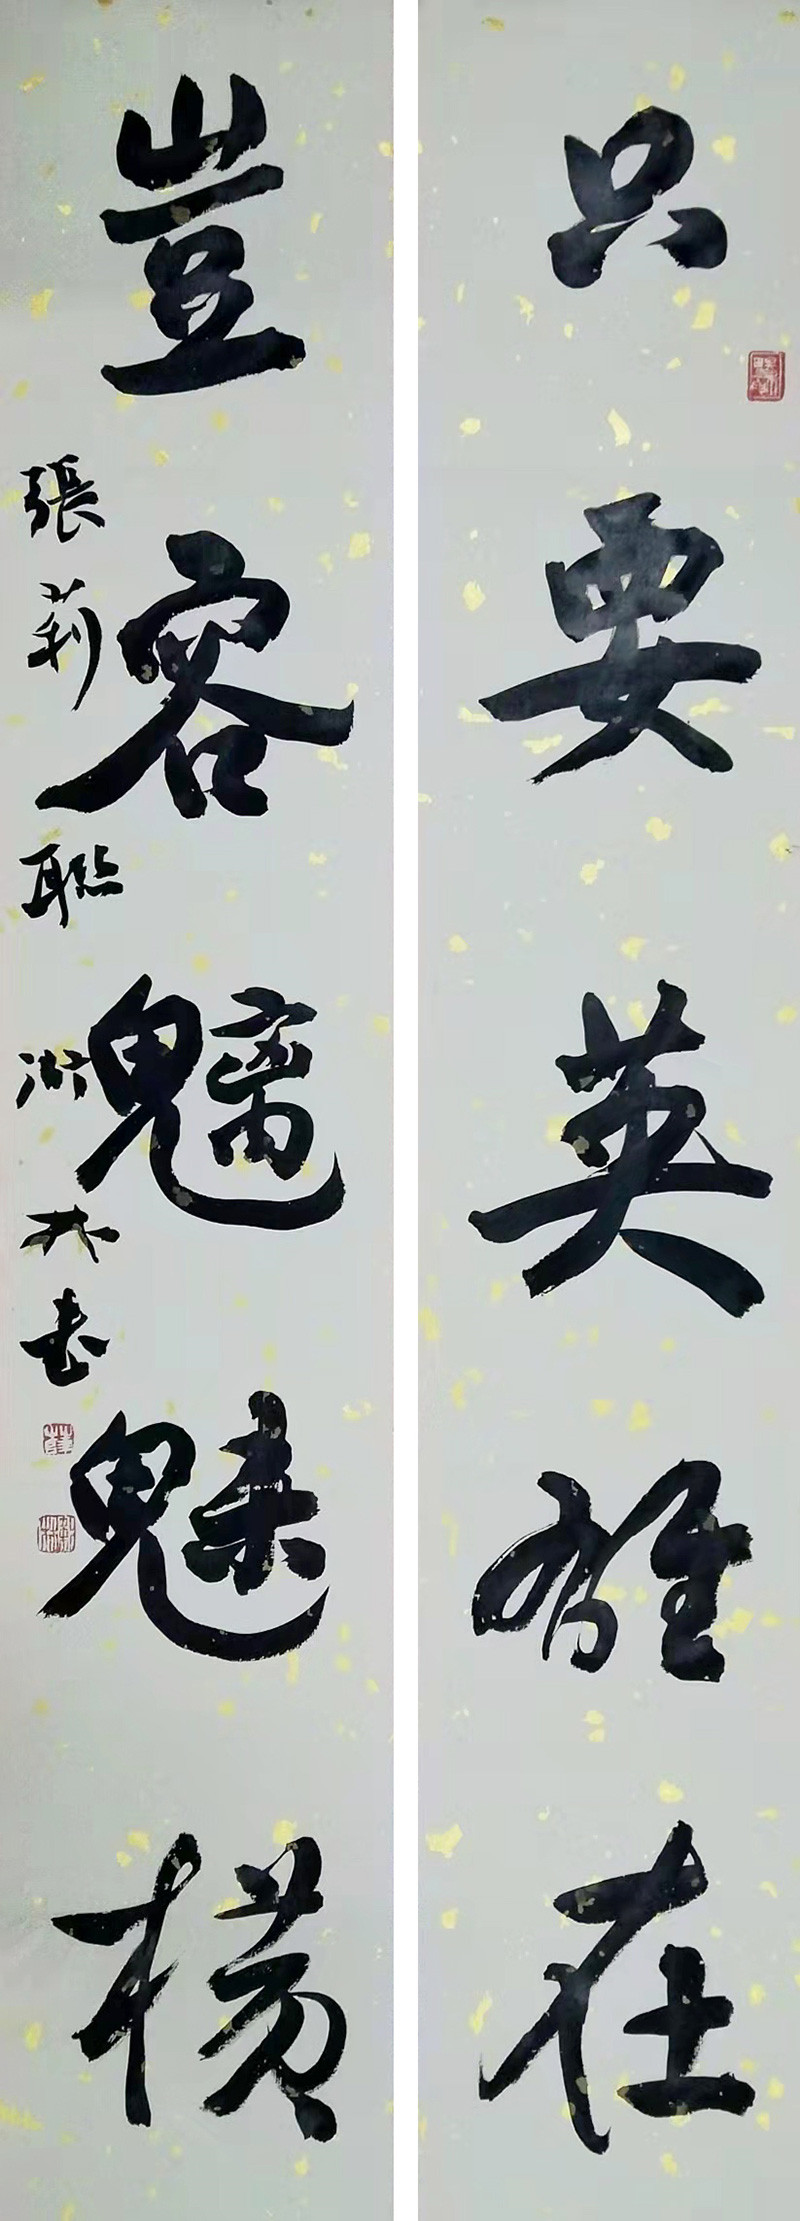 只要英雄在
豈容魑魅橫
張莉聯 林書